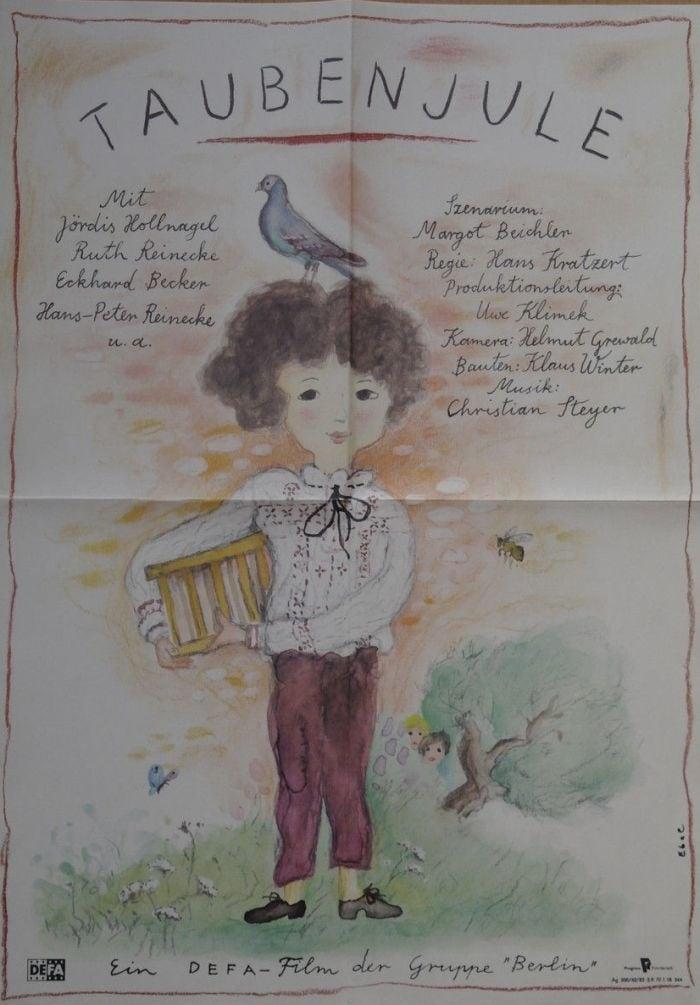 TAUBENJULE
Mit
Jördis Hollnagel
Ruth Reinecke
Eckhard Becker
Hans-Peter Reinecke
u. a.
Szenarium:
Margot Beichler
Regie: Hans Kratzert
Produktionsleitung:
Uwe Klimek
Kamera: Helmut Grewald
Bauten: Klaus Winter
Musik:
Christian Steyer
DEFA
Ein DEFA-Film der Gruppe "Berlin"